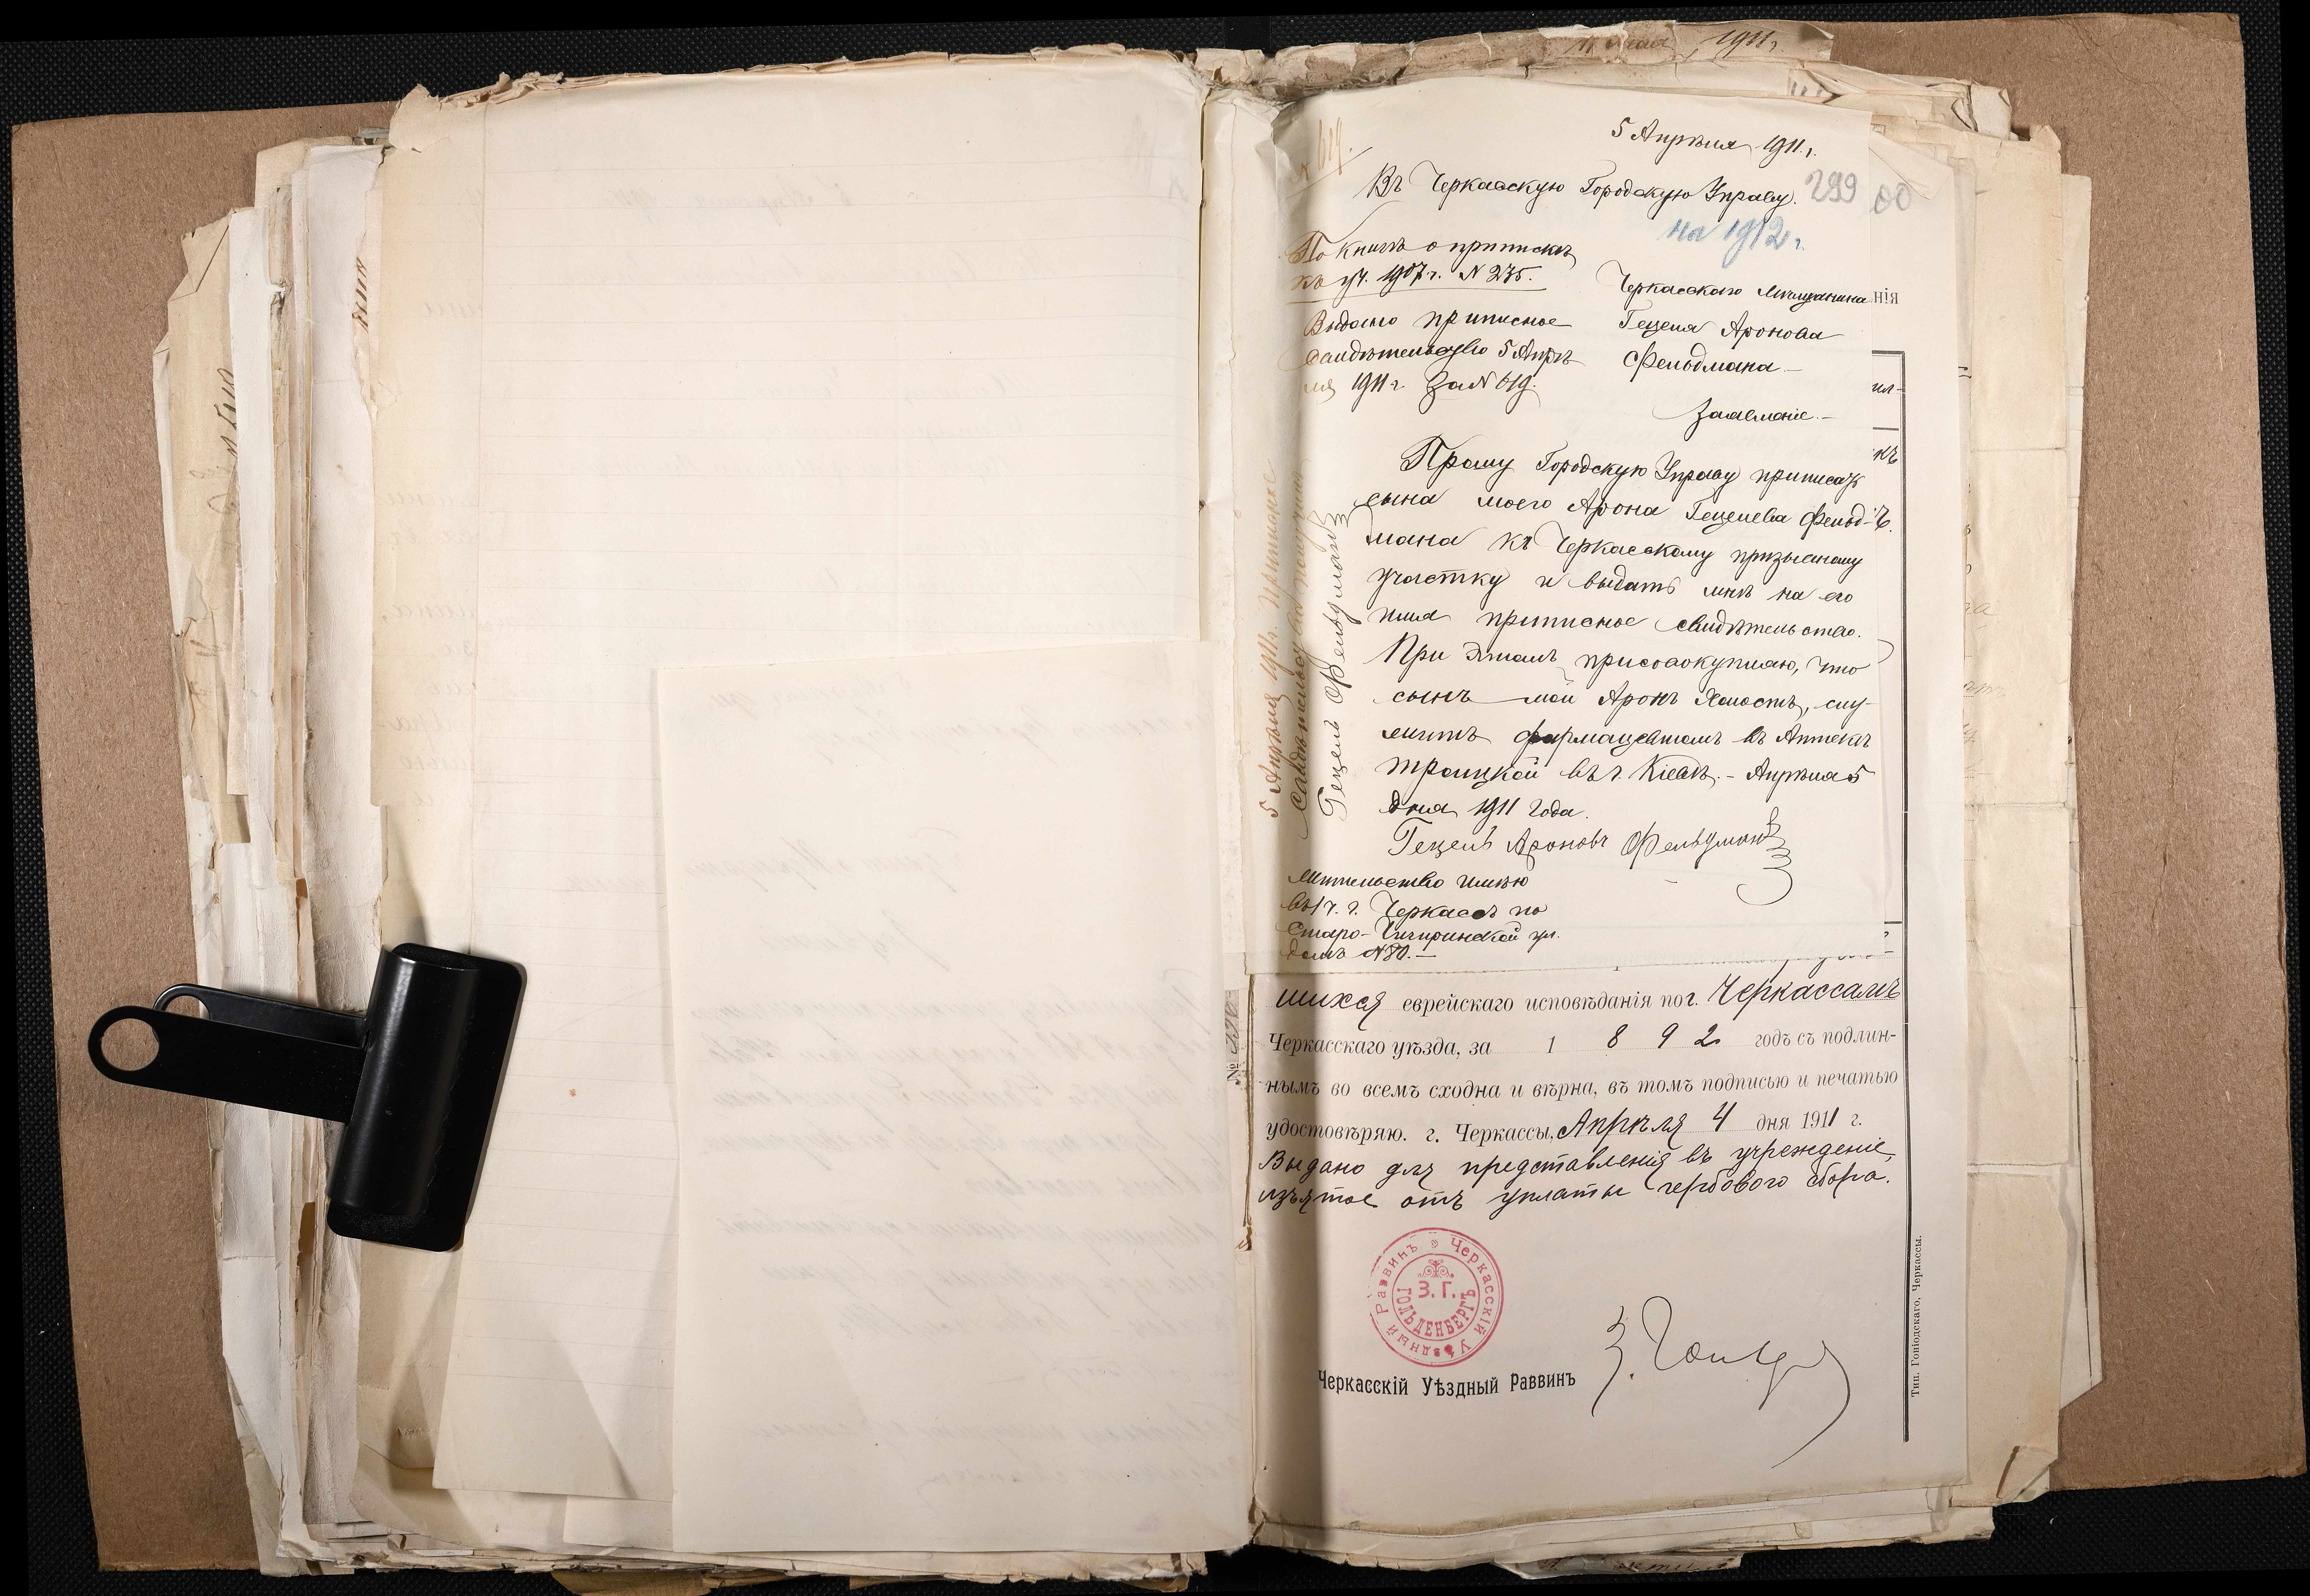 1911 г.
№ 619.
5 Апрѣля 1911 г.
Въ Черкасскую Городскую Управу.
299
на 1912 г.
По книгѣ о припискѣ
къ уч. 1907 г. № 235.
Выдано приписное
свидѣтельство 5 Апрѣ-
ля 1911 г. за № 619.
Черкасскаго мѣщанина
Гецеля Аронова
Фельдмана
Заявленіе.
Прошу Городскую Управу приписать
сына моего Арона Гецелева Фельд-
мана къ Черкасскому призывному
участку и выдать мнѣ на его
имя приписное свидѣтельство.
При этомъ присовокупляю, что
сынъ мой Аронъ холостъ, слу-
житъ фармацевтомъ въ Аптекѣ
троицкой въ г. Кіевѣ. Апрѣля 5
дня 1911 года.
Гецель Ароновъ Фельдманъ
Жительство имѣю
въ 1 ч. г. Черкассъ по
Старо-Чигиринской ул.
домъ № 80.
5 Апрѣля 1911 г. Приписное
свидѣтельство получилъ
Гецель Фельдманъ
нія
ил-
къ
шихся еврейскаго исповѣданія по г. Черкассамъ
Черкасскаго уѣзда, за 1892 годъ съ подлин-
нымъ во всемъ сходна и вѣрна, въ томъ подписью и печатью
удостовѣряю. г. Черкассы, Апрѣля 4 дня 1911 г.
Выдано для представленія въ учрежденіе,
изъятое отъ уплаты гербоваго сбора.
Черкасскій Уѣздный Раввинъ
З. Г.
ГОЛЬДЕНБЕРГЪ
Черкасскій Уѣздный Раввинъ
Тип. Гоніодскаго, Черкассы.